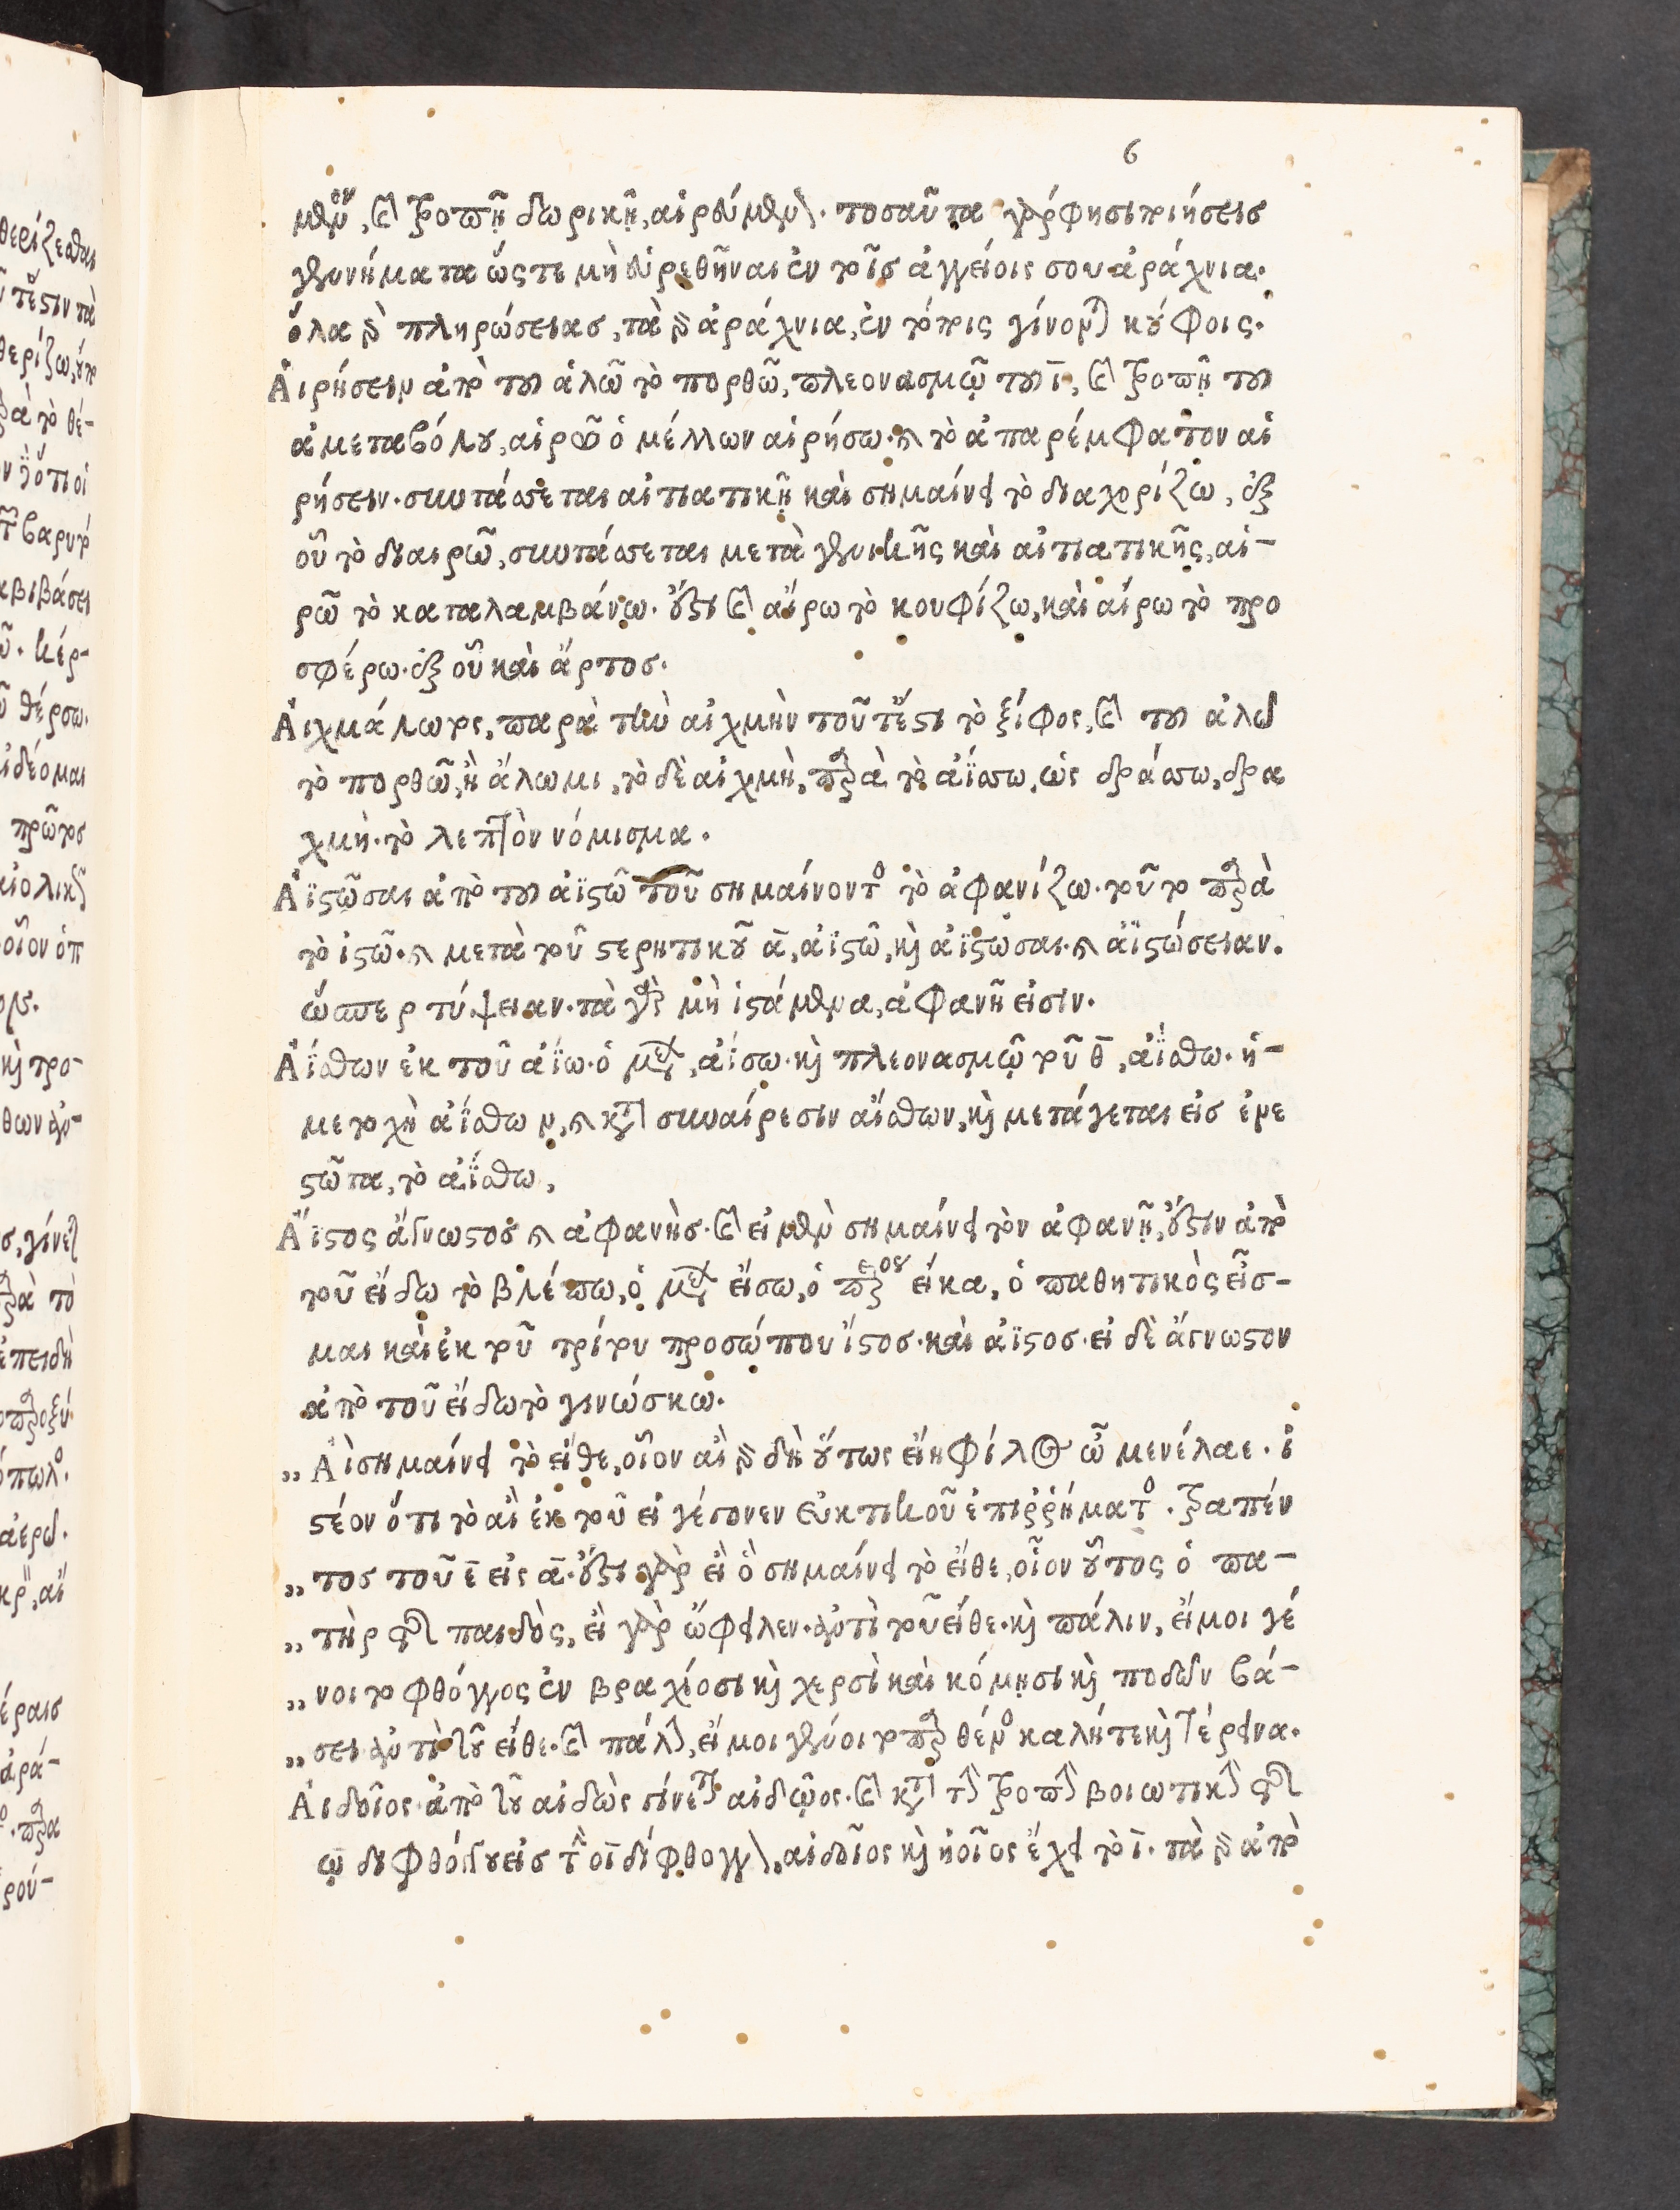 6
μένου, καὶ τροπῇ δωρικῇ, αἱρεύμενος. τοσαῦτα γὰρ φησι ποιήσεις
γεννήματα ὥστε μὴ εὑρεθῆναι ἐν τοῖσ ἀγγείοις σου ἀράχνια.
ὅλα δὲ πληρώσειασ, τὰ δὲ ἀράχνια, ἐν τόποις γίνονται κούφοις.
Αἱρήσειν ἀπὸ τοῦ ἁλῶ τὸ πορθῶ, πλεονασμῷ τοῦ ῑ, καὶ τροπῇ τοῦ
ἀμεταβόλου, αἱρῶ ὁ μέλλων αἱρήσω. καὶ τὸ ἀπαρέμφατον αἱ
ρήσειν. συντάσσεται αἰτιατικῇ καὶ σημαίνει τὸ διαχορίζω, ἐξ
οὗ τὸ διαιρῶ, συντάσσεται μετὰ γενικῆς καὶ αἰτιατικῆς, αἱ-
ρῶ τὸ καταλαμβάνω. ἔστι καὶ αἴρω τὸ κουφίζω, καὶ αἴρω τὸ προ
σφέρω. ἐξ οὗ καὶ ἄρτοσ.
Αἰχμάλωτος, παρὰ τὴν αἰχμὴν τοῦτἔστι τὸ ξίφος, καὶ τοῦ ἁλῶ
τὸ πορθῶ, ἢ ἅλωμι, τὸ δὲ αἰχμὴ, παρὰ τὸ ἀΐσσω, ὡς δράσσω, δρα
χμή. τὸ λεπτὸν νόμισμα.
Ἀϊστῶσαι ἀπὸ τοῦ ἀϊστῶ τοῦ σημαίνοντος τὸ ἀφανίζω. τοῦτο παρὰ
τὸ ἱστῶ. καὶ μετὰ τοῦ στερητικοῦ ᾱ, ἀϊστῶ, καὶ ἀϊστῶσαι. καὶ ἀϊστώσειαν.
ὥσπερ τύψειαν. τὰ γὰρ μὴ ἱστάμενα, ἀφανῆ εἰσιν.
Ἀΐσθων ἐκ τοῦ ἀΐω. ὁ μέλλων, ἀΐσω. καὶ πλεονασμῷ τοῦ θ̄, ἀΐσθω. ἡ-
μετοχὴ ἀΐσθων, καὶ κατὰ συναίρεσιν αἴσθων, καὶ μετάγεται εἰσ ἐνε
στῶτα, τὸ ἀΐσθω,
Ἄϊστος ἄγνωστος καὶ ἀφανὴσ. καὶ εἰ μὲν σημαίνει τὸν ἀφανῆ, ἔστιν ἀπὸ
τοῦ εἴδω τὸ βλέπω, ὁ μέλλων εἴσω, ὁ παρακείμενος εἶκα, ὁ παθητικὸς εἶσ-
μαι καὶ ἐκ τοῦ τρίτου προσώπου ἴστοσ. καὶ ἀϊστοσ. εἰ δὲ ἄγνωστον
ἀπὸ τοῦ εἴδω τὸ γινώσκω.
„ Αἲ σημαίνει τὸ εἴθε, οἷον αἲ γὰρ δὴ οὕτως εἴη φίλος ὦ μενέλαε. ἰ
στέον ὅτι τὸ αἲ ἐκ τοῦ εἰ γέγονεν εὐκτικοῦ ἐπιῤῥήματος. τραπέν
„ τοσ τοῦ ε̄ εἰς ᾱ. ἔστι γὰρ εἲ ὃ σημαίνει τὸ εἴθε, οἷον οὗτος ὁ πα-
„ τὴρ τοῦ παιδὸς, εἲ γὰρ ὤφειλεν. ἀντὶ τοῦ εἴθε. καὶ πάλιν, εἴ μοι γέ
„ νοιτο φθόγγος ἐν βραχίοσι καὶ χερσὶ καὶ κόμῃσι καὶ ποδῶν βά-
„ σει ἀντὶ τοῦ εἴθε. καὶ πάλιν, εἴ μοι γένοιτο παρθένος καλή τε καὶ τέρεινα.
Αἰδοῖος ἀπὸ τοῦ αἰδὼς γίνεται αἰδῷος. καὶ κατὰ τὴν τροπὴν βοιωτικὴν τῆς
ῳ διφθόγγου εἰσ τὴν οῑ δίφθογγον, αἰδοῖος καὶ ἠοῖος ἔχει τὸ ῑ. τὰ γὰρ ἀπὸ